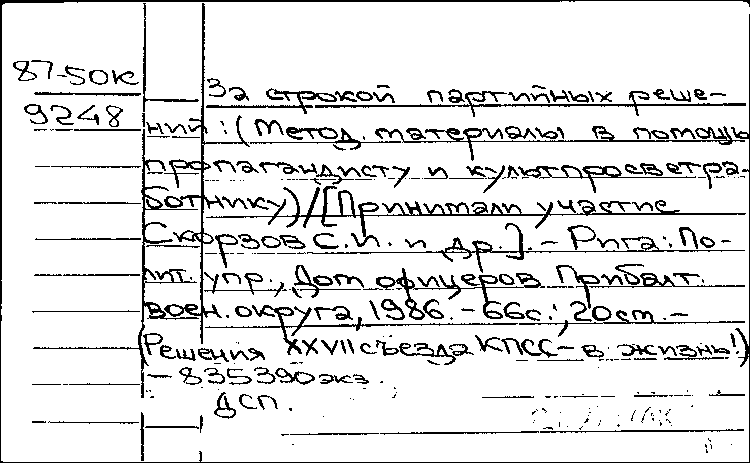 87-50к
9248
За строкой партийных реше-
ний : (Метод. материалы в помощь
пропагандисту и культпросветра-
ботнику) / [Принимали участие
Скорзов С.И. и др.]. - Рига : По-
лит. упр., Дом офицеров Прибалт.
воен. округа, 1986. - 66с.; 20см. -
(Решения XXVII съезда КПСС - в жизнь!)
- 835390экз.
ДСП.